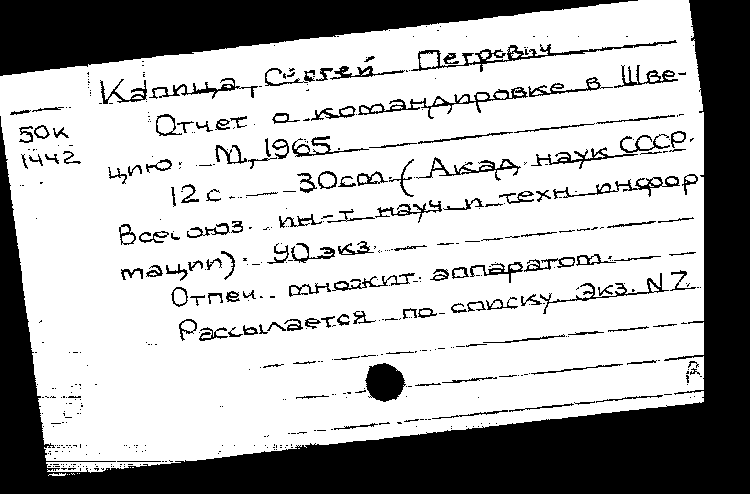 Капица, Сергей Петрович
50к
1442
Отчет о командировке в Шве-
цию. М, 1965.
12 с. — 30 cm. (Акад. наук СССР.
Всесоюз. ин-т науч. и техн. инфор-
мации). 90 экз.
Отпеч. множит. аппаратом.
Рассылается по списку. Экз. N 7.